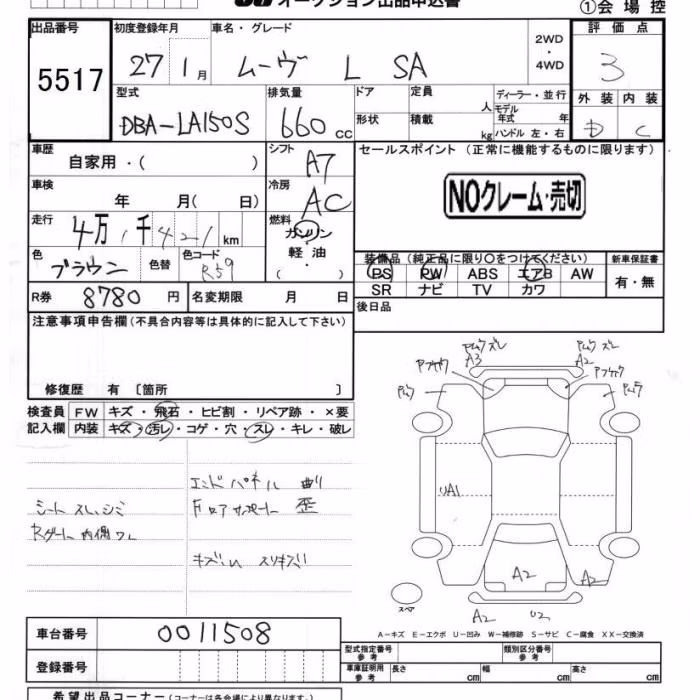 オークション出品申込書
①会場控
出品番号 初度登録年月 車名・グレード 評価点
5517 27 1月 ムーヴ L SA 2WD・4WD 3
型式 排気量 ドア 定員 人 ディーラー・並行 外装 内装
DBA-LA150S 660cc 形状 積載 kg モデル年式 年 ハンドル 左・右 D C
車歴 自家用・( ) シフト A7 セールスポイント (正常に機能するものに限ります)
車検 年 月( 日) 冷房 AC NOクレーム・売切
走行 4万1千421km 燃料 ガソリン 軽油 ( )
色 ブラウン 色替 色コード R59
装備品 (純正品に限り○をつけてください) 新車保証書
PS PW ABS エアB AW 有・無
SR ナビ TV カワ
R券 8780円 名変期限 月 日 後日品
注意事項申告欄 (不具合内容等は具体的に記入して下さい)
修復歴 有 [箇所 ]
検査員 FW キズ・飛石・ヒビ割・リペア跡・×要
記入欄 内装 キズ・汚レ・コゲ・穴・スレ・キレ・破レ
エンドパネル 曲り
シート スレ、シミ Fロアサポート 歪
Rゲート内側ワレ
キズ凹 スリキズ
PムラズレA3
PムラズレA2
Pフケ
Pムラ
Pムラ
UA1
A2
A2
スペア
A2 U2
A-キズ E-エクボ U-凹み W-補修跡 S-サビ C-腐食 XX-交換済
車台番号 0011508
型式指定番号 参考 類別区分番号 参考
登録番号 車庫証明用 参考 長さ cm 幅 cm 高さ cm
希望出品コーナー (コーナーは各会場により異なります)